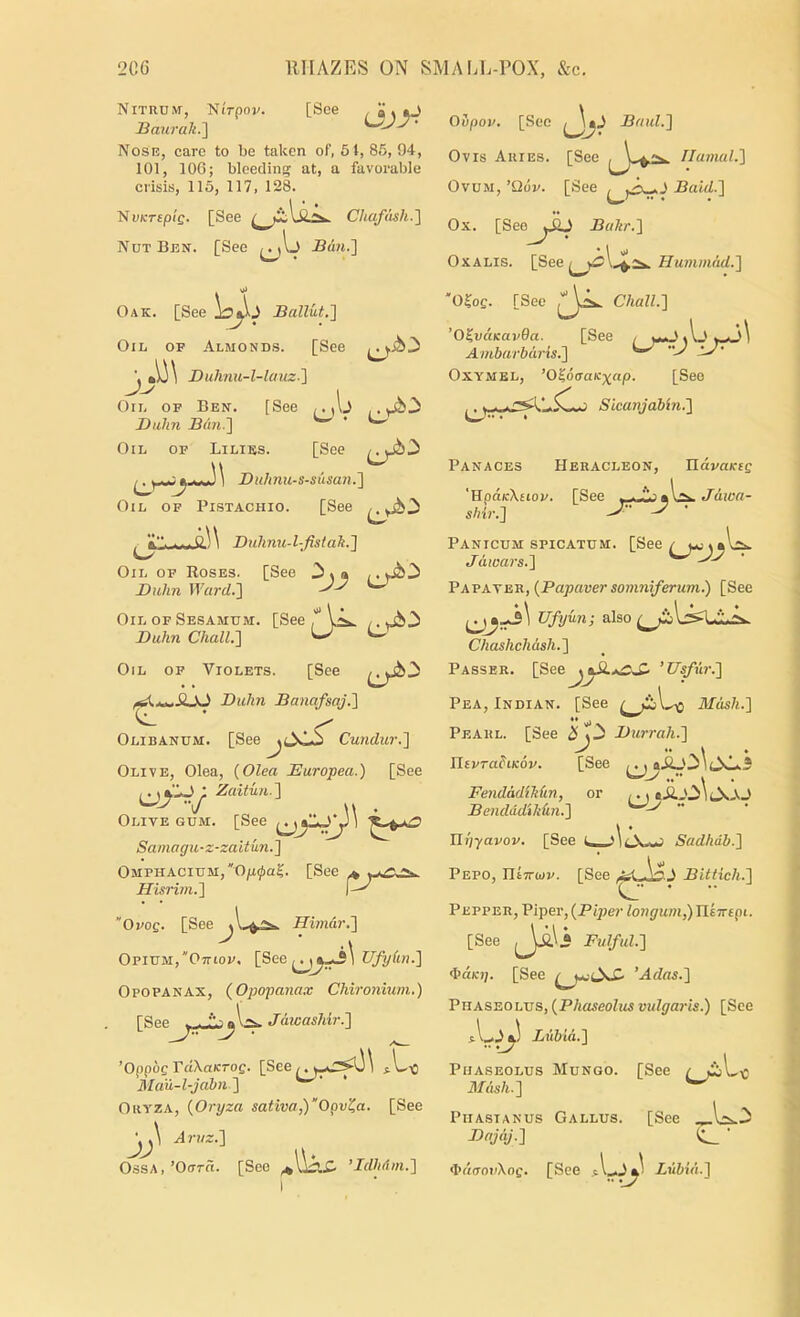 206 RHAZES ON SMALL-POX, &c.
NITRUM, Νίτρον. [See بورق
Baurak.]
NOSE, care to be taken of, 51, 85, 94,
101, 106; bleeding at, a favorable
crisis, 115, 117, 128.
Νυκτερίς. [See خفاش Chafásh.]
NUT BEN. [See بان Bán.]
OAK. [See بلوط Ballút.]
OIL OF ALMONDS. [See دهن
اللوز Duhnu-l-lauz.]
OIL OF BEN. [See دهن بان
Duhn Bán.]
OIL OF LILIES. [See دهن
السوسن Duhnu-s-súsan.]
OIL OF PISTACHIO. [See دهن
الفستق Duhnu-l-fistak.]
OIL OF ROSES. [See دهن ورد
Duhn Ward.]
OIL OF SESAMUM. [See دهن خل
Duhn Chall.]
OIL OF VIOLETS. [See دهن
بنفسج Duhn Banafsaj.]
OLIBANUM. [See كندر Cundur.]
OLIVE, Olea, (Olea Europea.) [See
زيتون Zaitún.]
OLIVE GUM. [See صمغ الزيتون
Samagu-z-zaitún.]
OMPHACIUM, Ὄμφαξ. [See حصرم
Hisrim.]
Ὄνος. [See حمار Himár.]
OPIUM, Ὄπιον. [See افيون Ufyún.]
OPOPANAX, (Opopanax Chironium.)
[See جاوشير Jáwashír.]
Ὀῤῥὸς Γάλακτος. [See ماء الجبن
Máü-l-jabn.]
ORYZA, (Oryza sativa,) Ὄρυζα. [See
ارز Aruz.]
OSSA, Ὀστᾶ. [See عظام 'Idhám.]
Οὖρον. [See بول Baul.]
OVIS ARIES. [See حمل Hamal.]
OVUM, Ὠόν. [See بيض Baid.]
OX. [See بقر Bakr.]
OXALIS. [See حماض Hummád.]
Ὄξος. [See خل Chall.]
Ὀξυάκανθα. [See امبرباريس
Ambarbáris.]
OXYMEL, Ὀξόσακχαρ. [See
سكنجبين Sicanjabín.]
PANACES HERACLEON, Πάνακες
Ἡράκλειον. [See جاوشير Jáwa-
shír.]
PANICUM SPICATUM. [See جاورس
Jáwars.]
PAPAVER, (Papaver somniferum.) [See
افيون Ufyún; also خشخاش
Chashchásh.]
PASSER. [See عصفور 'Usfúr.]
PEA, INDIAN. [See ماش Másh.]
PEARL. [See درة Durrah.]
Πενταδικόν. [See فنداديقون
Fendádíkún, or بنداديقون
Bendádíkún.]
Πήγανον. [See سداب Sadháb.]
PEPO, Πέπων. [See بطيخ Bittich.]
PEPPER, Piper, (Piper longum,) Πέπερι.
[See فلفل Fulful.]
Φάκη. [See عدس 'Adas.]
PHASEOLUS, (Phaseolus vulgaris.) [See
لوبياء Lúbiá.]
PHASEOLUS MUNGO. [See ماش
Másh.]
PHASIANUS GALLUS. [See دجاج
Dajáj.]
Φάσουλος. [See لوبياء Lúbiá.]